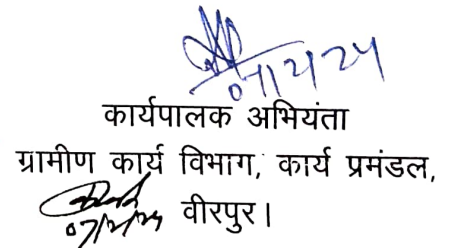 07/2/24
कार्यपालक अभियंता
ग्रामीण कार्य विभाग, कार्य प्रमंडल,
07/2/24 वीरपुर।